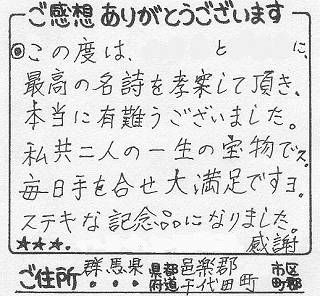 ご感想 ありがとうございます
◎この度は、 と に、
最高の名詩を孝案して頂き、
本当に有難うございました。
私共二人の一生の宝物です。
毎日手を合せ大満足ですヨ。
ステキな記念品になりました。
★★★. 感謝
ご住所 群馬県 都道府県 邑楽郡千代田町 市区町郡